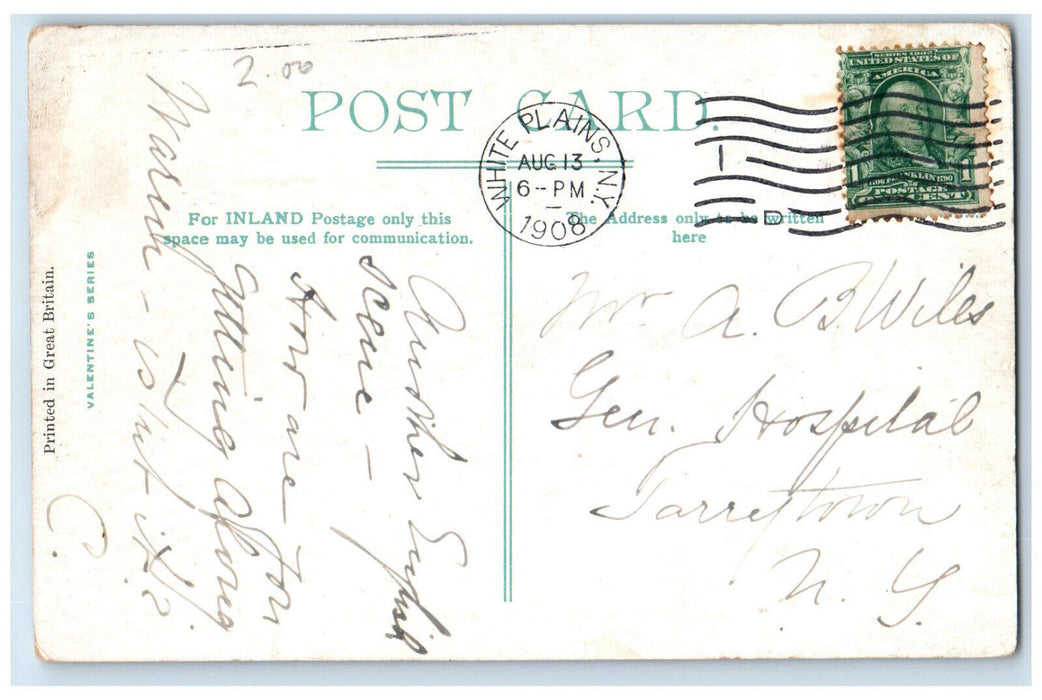 2.00
POST CARD.
WHITE PLAINS, N.Y.
AUG 13
6-PM
1908
SERIES 1902
UNITED STATES OF
AMERICA
1706 FRANKLIN 1790
POSTAGE
1 CENT
D
For INLAND Postage only this
space may be used for communication.
The Address only to be written
here
Printed in Great Britain.
VALENTINE'S SERIES
Another English
scene -
How are you
getting along
Warm - isn't it?
C.
Mr A. B. Wiles
Gen. Hospital
Tarrytown
N. Y.